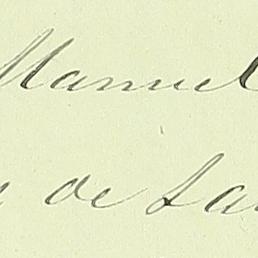 Manuel
de La